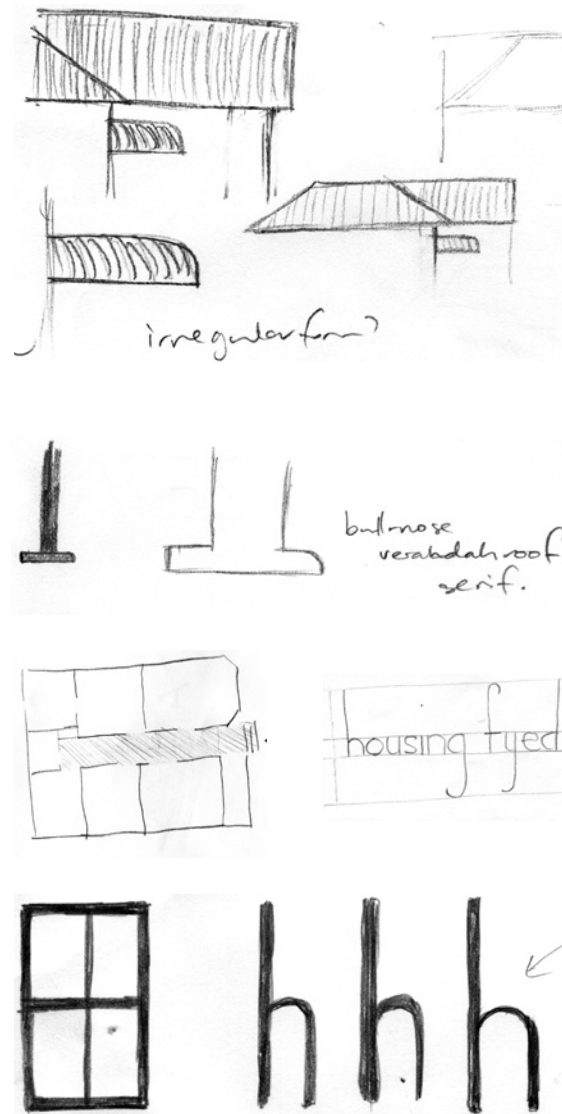 irregular form?
bull-nose
verabdah roof
serif.
housing fyed
h h h